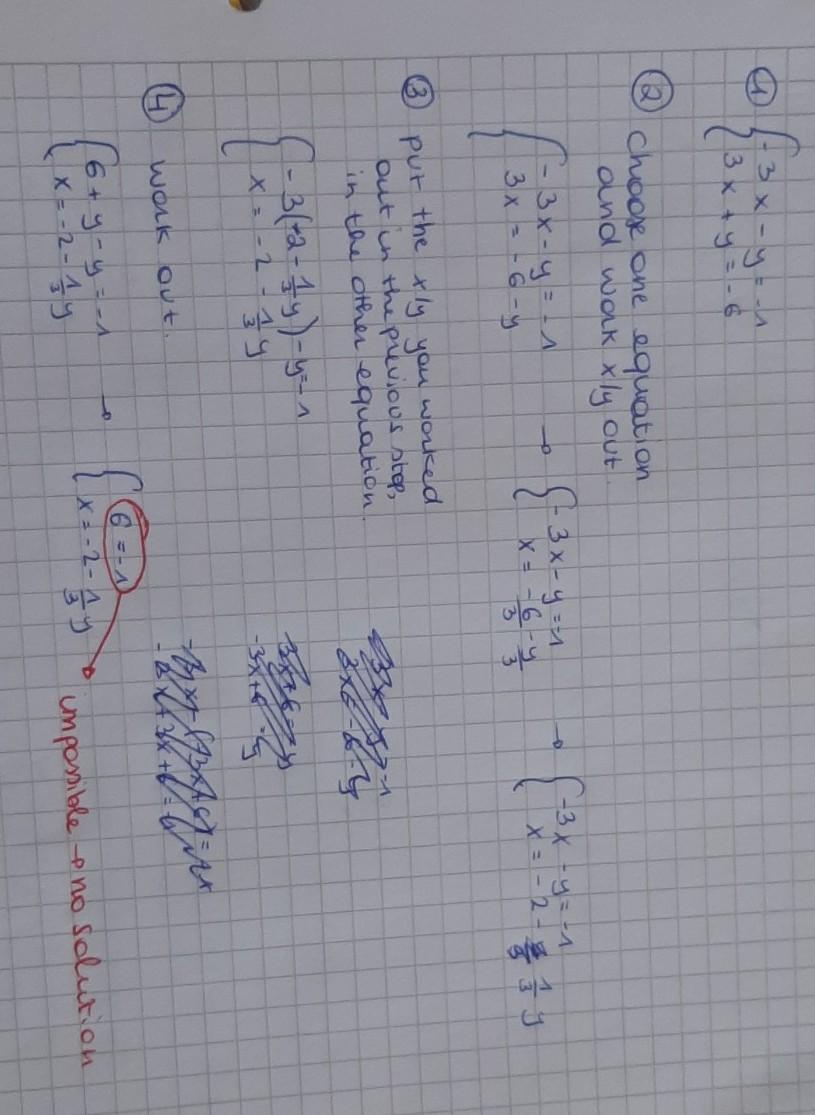 ①
{-3x-y=-1
{3x+y=-6
② choose one equation
and work x/y out.
{-3x-y=-1 → {-3x-y=-1 → {-3x-y=-1
{3x=-6-y {x=-6/3-y/3 {x=-2-1/3y
③ put the x/y you worked
out in the previous step,
in the other equation.
{-3(-2-1/3y)-y=-1
{x=-2-1/3y
④ work out.
{6+y-y=-1 → {6=-1
{x=-2-1/3y {x=-2-1/3y
impossible → no solution